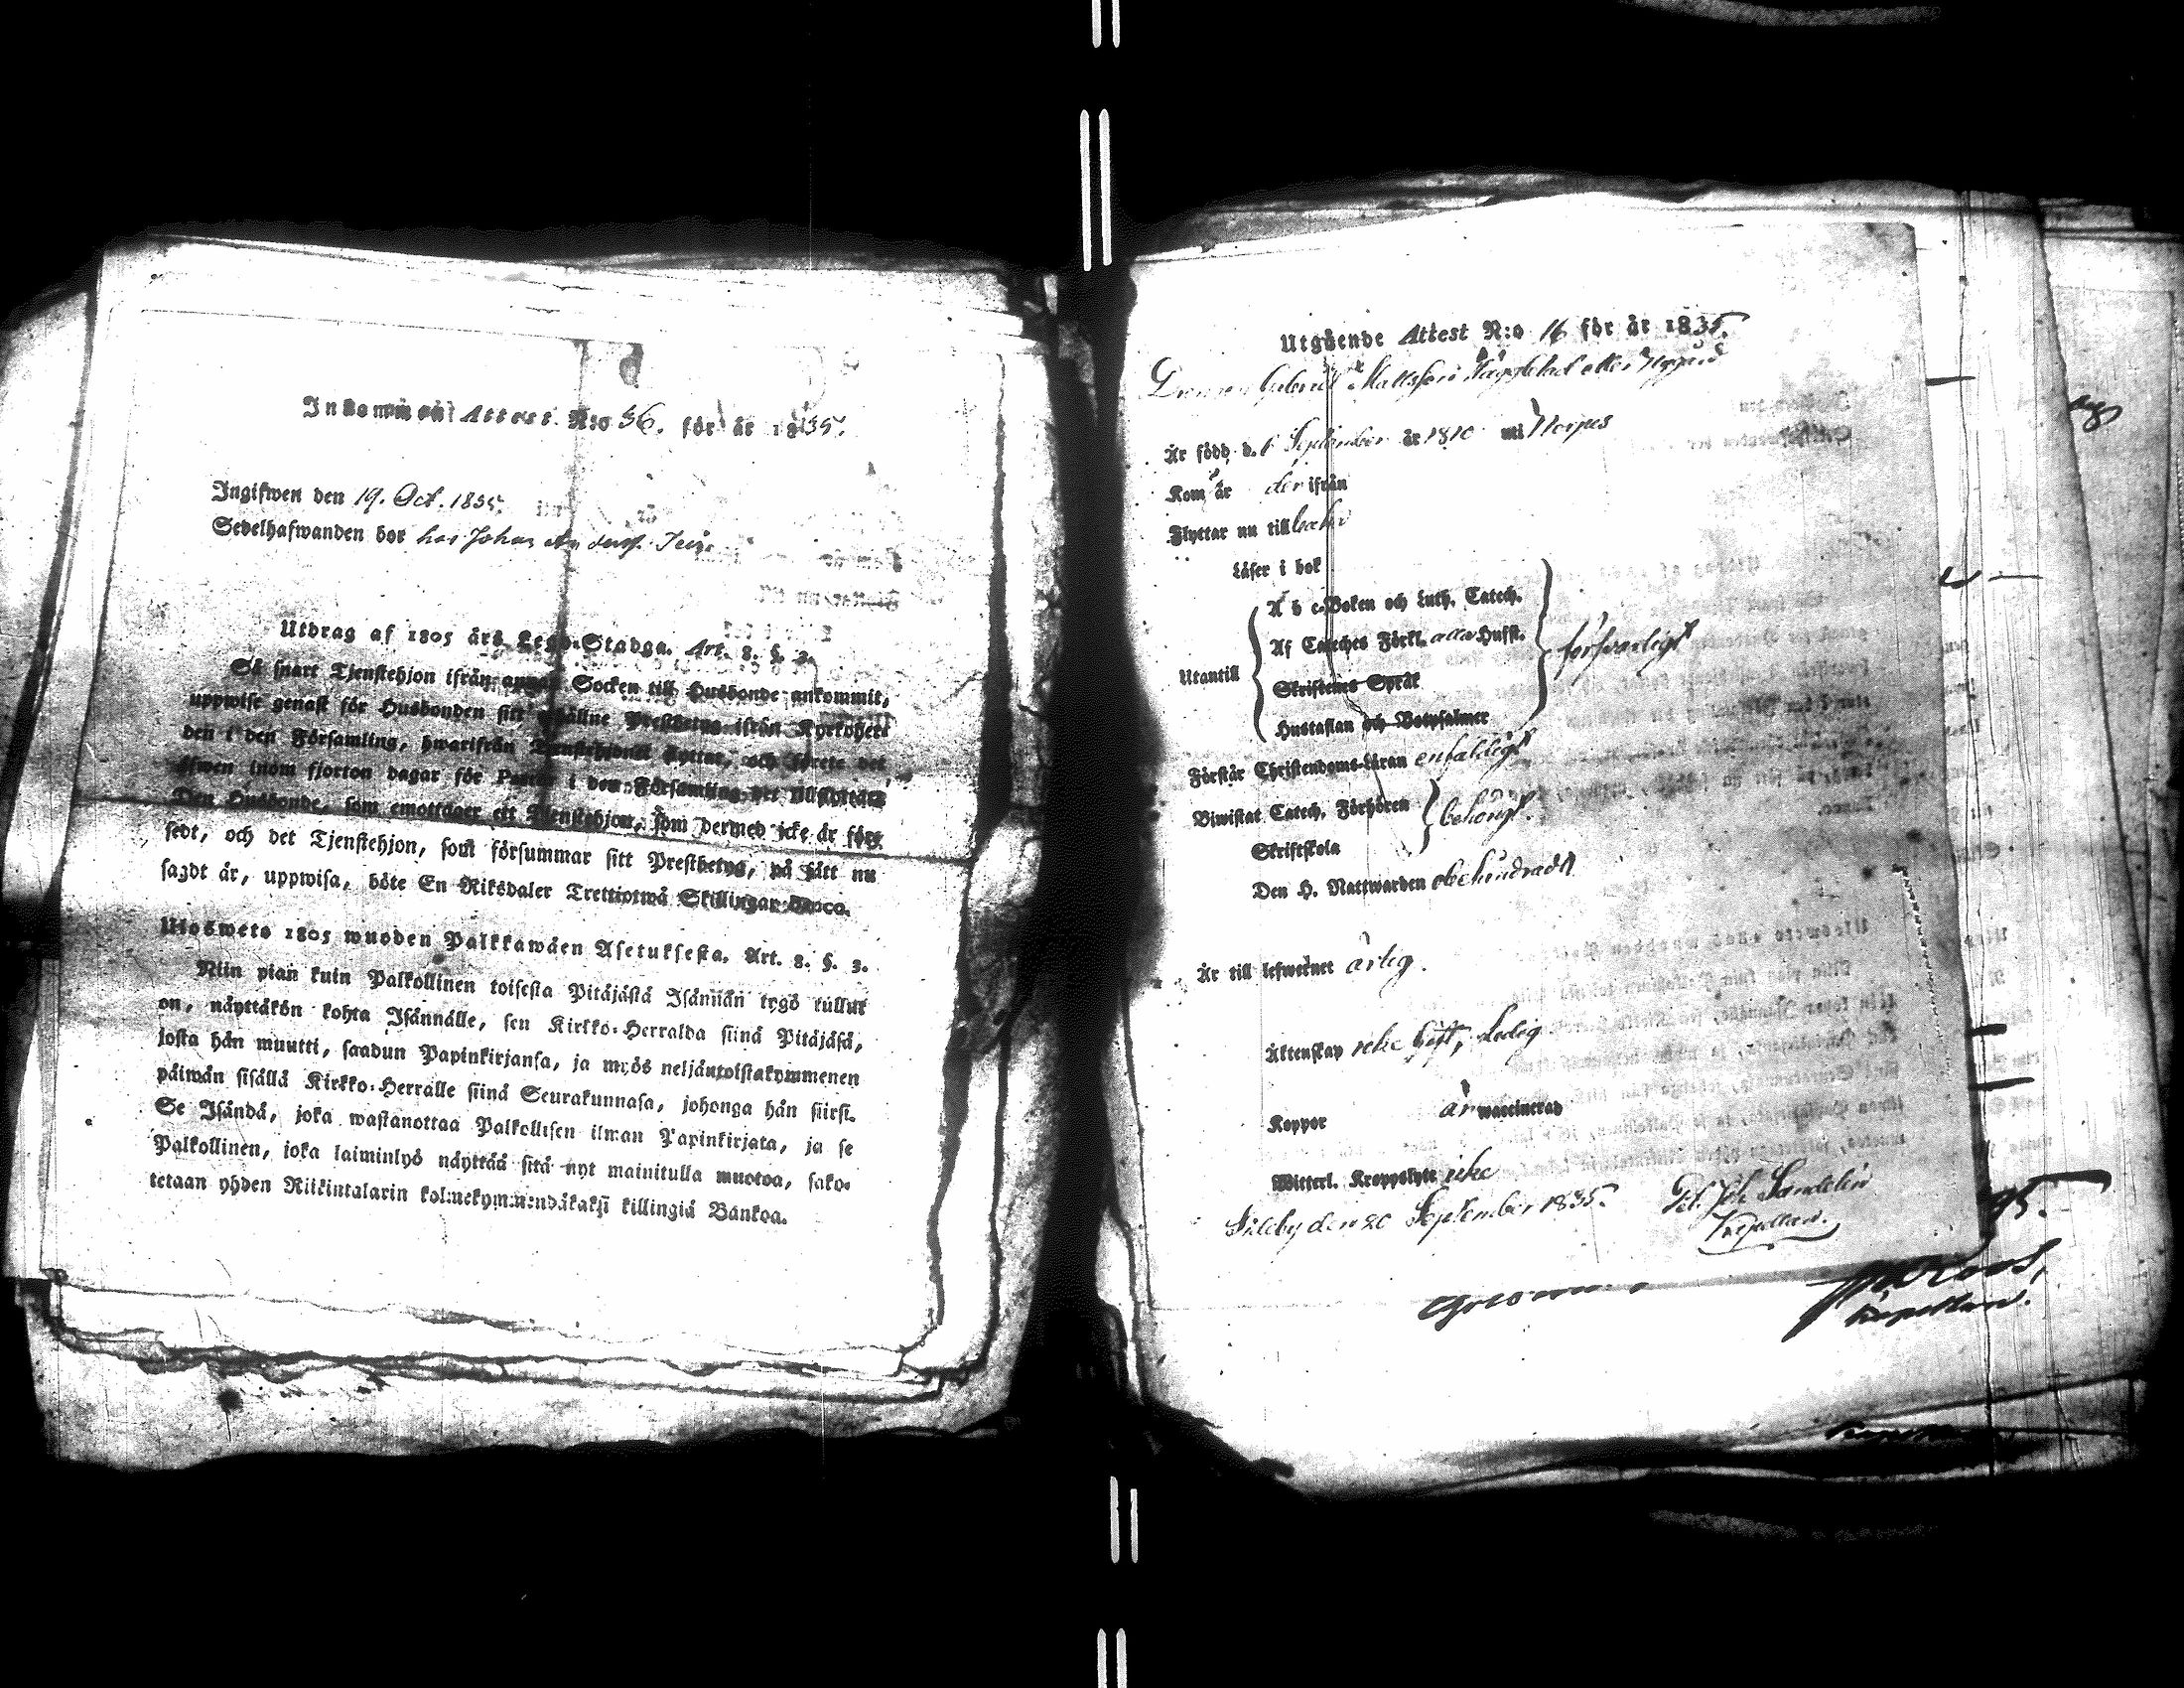 Inkommen Attest. N:o 36. för år 1835.
Ingifwen den 19. Oct. 1835.
Sedelhafwanden bor hos Johan
Utdrag af 1805 års Lego-Stadga. Art. 8. §. 3.
Så snart Tjenstehjon ifrån annan Socken till Husbonde ankommit,
uppwise genast för Husbonden sitt Prestbetyg ifrån Kyrkoher:
den i den Församling, hwarifrån Tjenstehjonet flyttar, och det
äfwen inom fjorton dagar för i den Församling
Den Husbonde, som emottager ett Tjenstehjon, som dermed icke är förs
sedt, och det Tjenstehjon, som försummar sitt Prestbetyg, på sätt nu
sagdt är, uppwisa, böte En Riksdaler Trettiotwå Skillingar Banco.
Ulosweto 1805 wuoden Palkkawäen Asetuksesta. Art. 8. §. 3.
Niin pian kuin Palkollinen toisesta Pitäjästä Isännän tygö tullut
on, näyttäkön kohta Isännälle, sen Kirkko-Herralda siinä Pitäjäsä,
josta hän muutti, saadun Papinkirjansa, ja myös neljäntoistakymmenen
päiwän sisällä Kirkko-Herralle siinä Seurakunnasa, johonga hän siirsi.
Se Isändä, joka wastanottaa Palkollisen ilman Papinkirjata, ja se
Palkollinen, joka laiminlyö näyttää sitä nyt mainitulla muotoa, sako-
tetaan yhden Riikintalarin kolmekymmendäkaksi killingiä Bankoa.
Utgående Attest N:o 16 för år 1835.
Drengen Gabriel Mattsson
Är född d. 1 September år 1810 uti
Kom år der ifrån
Flyttar nu till
Läser i bok
A b c-Boken och Luth. Catech.
Af Catechés Förkl. alla Husst.
Utantill
Skriftenes Språk
försvarligt
Hustaflan och Botpsalmer
Förstår Christendoms-Läran enfaldigt
Biwistat Catech. Förhören
behörigt.
Skriftskola
Den H. Nattwarden obehindradt
Är till lefwernet ärlig.
Äktenskap icke gift, Ledig
Koppor är waccinerad
Witterl. Kroppslyte icke
den 20 September 1835. Joh. Sandelin
Kapellan.
95.
Kapellan.